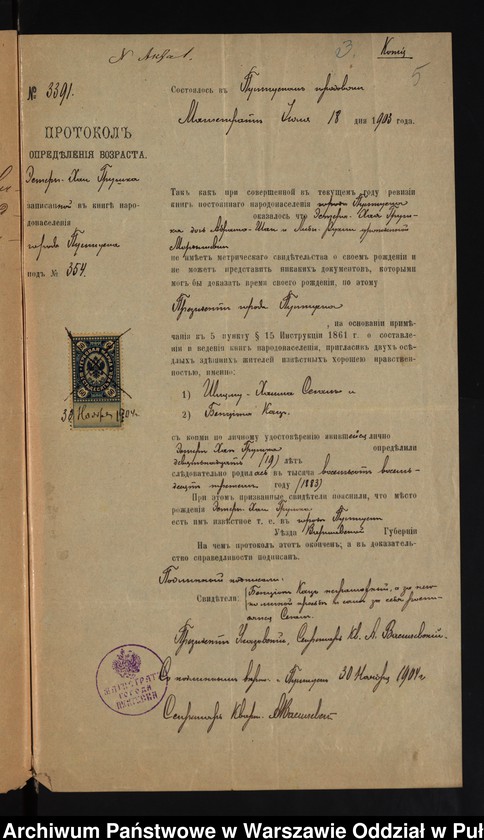 Копія
3
5
№ 3391.
ПРОТОКОЛЪ
ОПРЕДѢЛЕНІЯ ВОЗРАСТА.
Эстеры-Хаи Грушка
записанной въ книгѣ на-
родонаселенія
города Пултуска
подъ № 354.
Состоялось въ Пултускомъ городовомъ
Магистратѣ Іюля 18 дня 1903 года.
Такъ какъ при совершенной въ текущемъ году ревизіи
книгъ постояннаго народонаселенія города Пултуска
оказалось что Эстера-Хая Груш-
ка дочь
не имѣетъ метрическаго свидѣтельства о своемъ рожденіи и
не можетъ представить никакихъ документовъ, которыми
могъ бы доказать время своего рожденія, по этому
Президентъ города Пултуска
, на основаніи примѣча-
нія къ 5 пункту § 15 Инструкціи 1861 г. о составле-
ніи и веденіи книгъ народонаселенія, пригласивъ двухъ осѣд-
лыхъ здѣшнихъ жителей извѣстныхъ хорошею нравствен-
ностью, именно:
1) Сегалъ и
2) Бенціона Кацъ.
съ коими по личному удостовѣренію явившейся лично
Эстеры Хаи Грушка опредѣлили
девятнадцать /19/ лѣтъ
слѣдовательно родилась въ тысяча восемьсотъ восемь-
десятъ третьемъ году /1883/
При этомъ призванные свидѣтели пояснили, что мѣсто
рожденія Эстеры-Хаи Грушка
есть имъ извѣстное т. е. въ городѣ Пултускѣ
Уѣзда Варшавской Губерніи
На чемъ протоколъ этотъ оконченъ; а въ доказатель-
ство справедливости подписанъ.
Подлинный подписали:
Свидѣтели: Бенціонъ Кацъ неграмотный, а за него
Сегалъ.
Президентъ Секретарь Кв. А. Василевскій.
Съ подлиннымъ вѣрно. г. Пултускъ 30 Ноября 1904 г
Секретарь
30 Ноября 1904 г.
МАГИСТРАТЪ
ГОРОДА
ПУЛТУСКА
Archiwum Państwowe w Warszawie Oddział w Puł